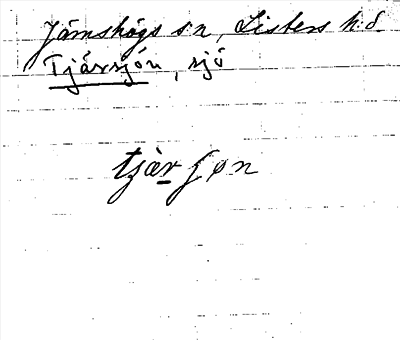 Jämshögs sn, Listers hd.
Tjärsjön, sjö
tjæ̀r ʃøn